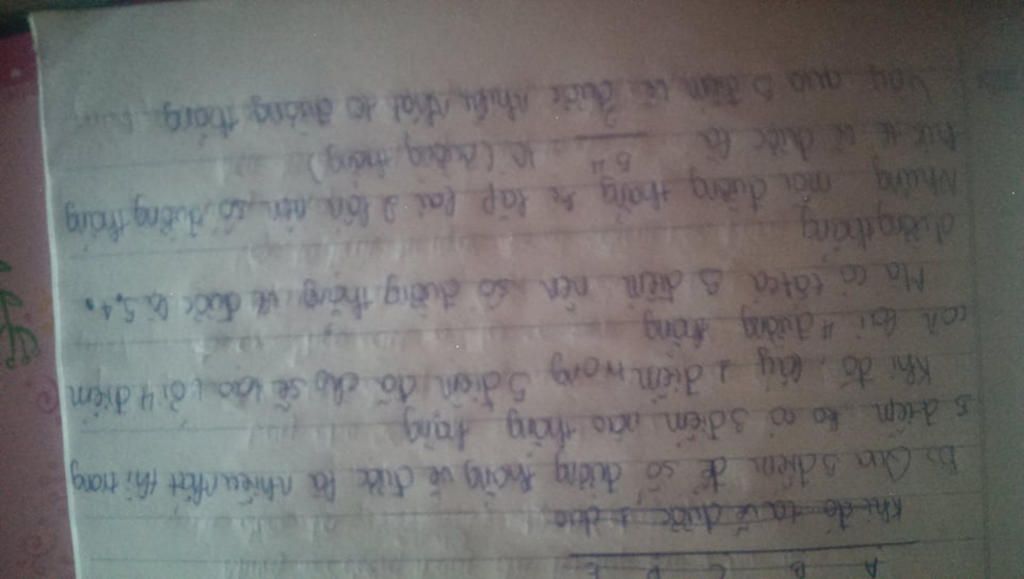 A B C D E
Khi đó ta vẽ được 1 đườ
b. Qua 5 điểm để số đường thẳng vẽ được là nhiều nhất thì trong
5 điểm ko có 3 điểm nào thẳng hàng
Khi đó, lấy 1 điểm trong 5 điểm đó chg sẽ với 4 điểm
còn lại 4 đường thẳng
Mà có tất cả 5 điểm nên số đường thẳng vẽ được là 5.4
đường thẳng
Nhưng mỗi đường thẳng sẽ lặp lại 2 lần nên số đường thẳng
vẽ được là 5.4 10 (đường thẳng)
Vậy qua 5 điểm vẽ được nhiều nhất 10 đường thẳng